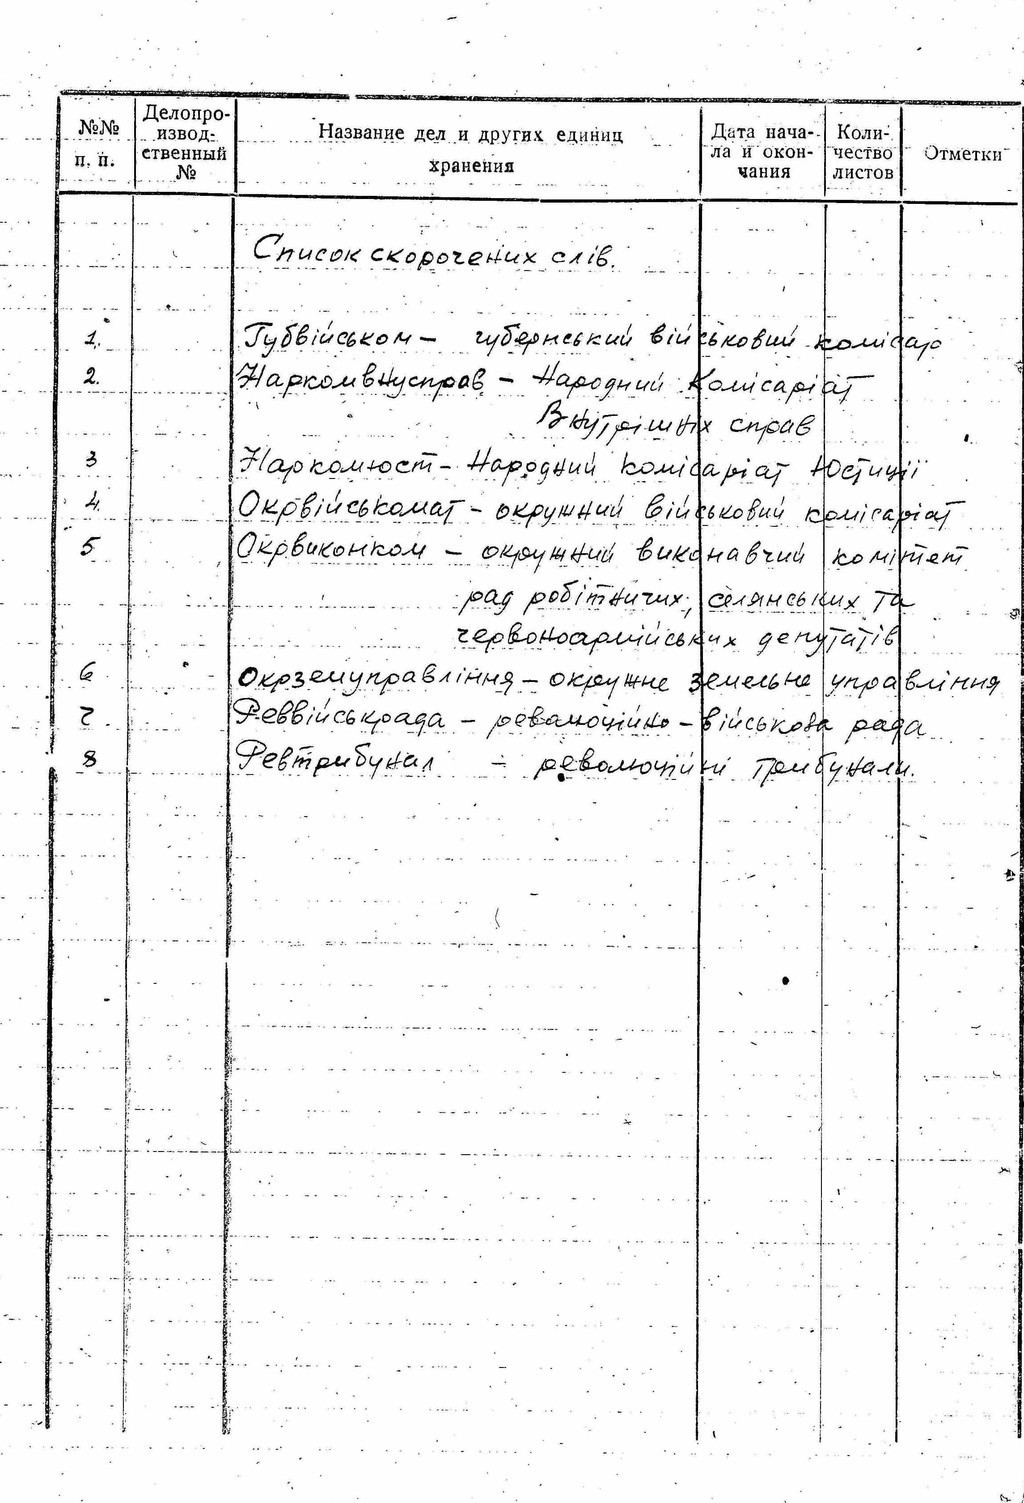 №№ п. п.
Делопро-
извод-
ственный
№
Название дел и других единиц
хранения
Дата нача-
ла и окон-
чания
Коли-
чество
листов
Отметки
Список скорочених слів.
1. Губвійськом – губернський військовий комісар
2. Наркомвнусправ – Народний Комісаріат
Внутрішніх справ
3 Наркомюст – Народний комісаріат Юстиції
4. Окрвійськомат – окружний військовий комісаріат
5 Окрвиконком – окружний виконавчий комітет
рад робітничих, селянських та
червоноармійських депутатів
6 Окрземуправління – окружне земельне управління
7. Реввійськрада – революційно – військова рада
8 Ревтрибунал – революційні трибунали.